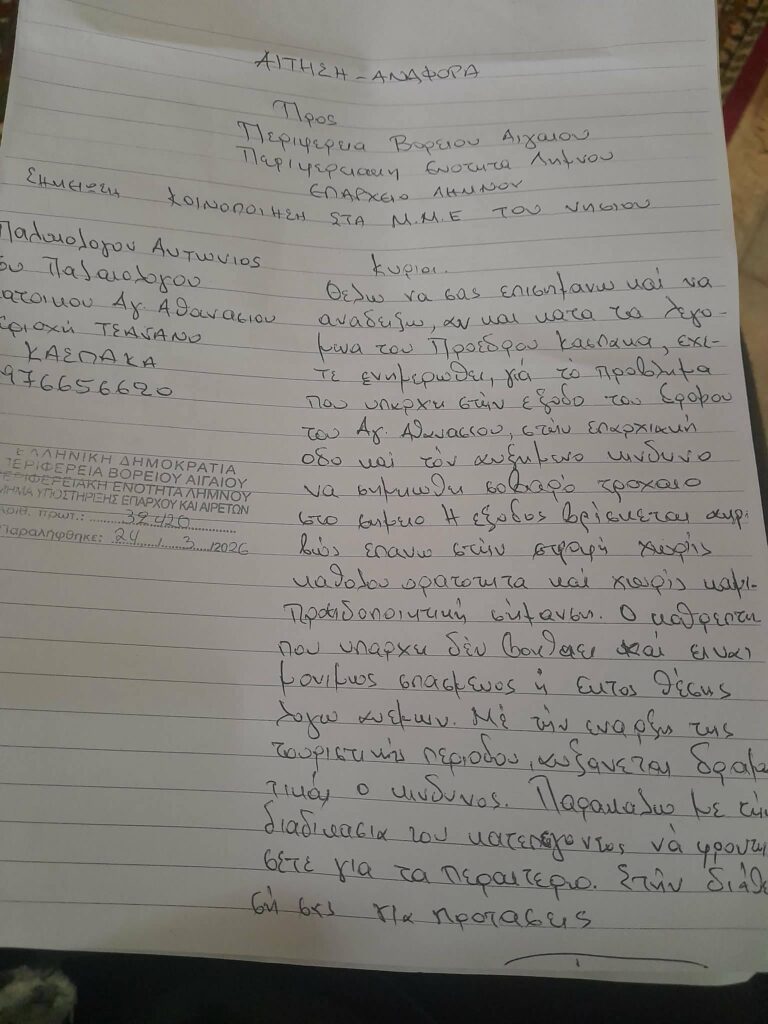 ΑΙΤΗΣΗ - ΑΝΑΦΟΡΑ
Προς
Περιφερεια Βορειου Αιγαιου
Περιφερειακη Ενοτητα Λημνου
ΕΠΑΡΧΕΙΟ ΛΗΜΝΟΥ
Σημειωση ΚΟΙΝΟΠΟΙΗΣΗ ΣΤΑ Μ.Μ.Ε ΤΟΥ ΝΗΣΙΟΥ
Παλαιολογου Αντωνιος
ου Παλαιολογου
ατοικου Αγ. Αθανασιου
εριοχη ΤΣΑΣΑΝΟ
ΚΑΣΠΑΚΑ
976656620
ΕΛΛΗΝΙΚΗ ΔΗΜΟΚΡΑΤΙΑ
ΠΕΡΙΦΕΡΕΙΑ ΒΟΡΕΙΟΥ ΑΙΓΑΙΟΥ
ΠΕΡΙΦΕΡΕΙΑΚΗ ΕΝΟΤΗΤΑ ΛΗΜΝΟΥ
ΤΜΗΜΑ ΥΠΟΣΤΗΡΙΞΗΣ ΕΠΑΡΧΟΥ ΚΑΙ ΑΙΡΕΤΩΝ
Αριθ. πρωτ.: 39426
Παραλήφθηκε: 24 / 3 /2026
Κυριοι.
Θελω να σας επισημανω και να
αναδειξω, αν και κατα τα λεγο-
μενα του Προεδρου Κασπακα, εχε-
τε ενημερωθει, γιά το προβλημα
που υπαρχει στήν εξοδο του δρομου
του Αγ. Αθανασιου, στήν επαρχιακή
οδο και τόν αυξημενο κινδυνο
να σημειωθει σοβαρό τροχαιο
στο σημειο Η εξοδος βρίσκεται ακρι
βώς επανω στήν στροφή χωρίς
καθολου ορατοτητα και χωρίς καμι-
προειδοποιητική σήμανση. Ο καθρεπτη
που υπαρχει δέν βοηθαει και ειναι
μονιμως σπασμενος ή εκτος θέσης
λογω ανεμων. Μέ τήν εναρξη της
τουριστικής περιοδου, αυξανεται δραμα
τικά, ο κινδυνος. Παρακαλω με τήν
διαδικασια του κατεπειγοντος νά φροντι
σετε για τα περαιτερω. Στήν διάθε
σή σας για προτασεις